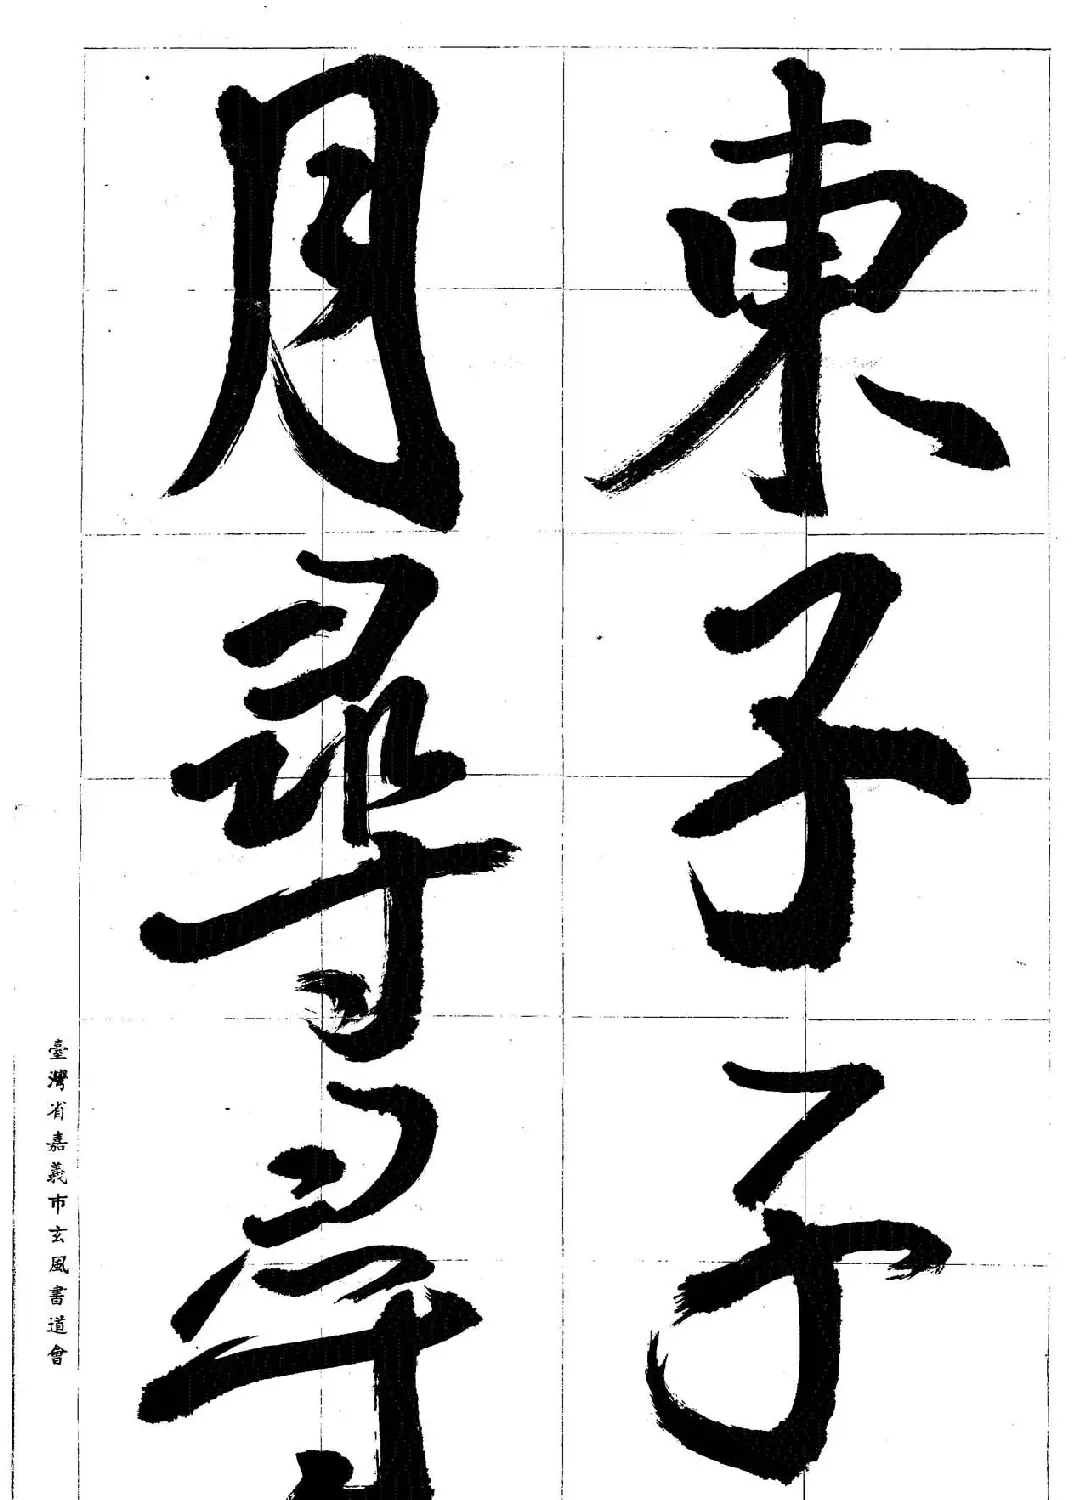 東子子
月尋尋
臺灣省嘉義市玄風書道會